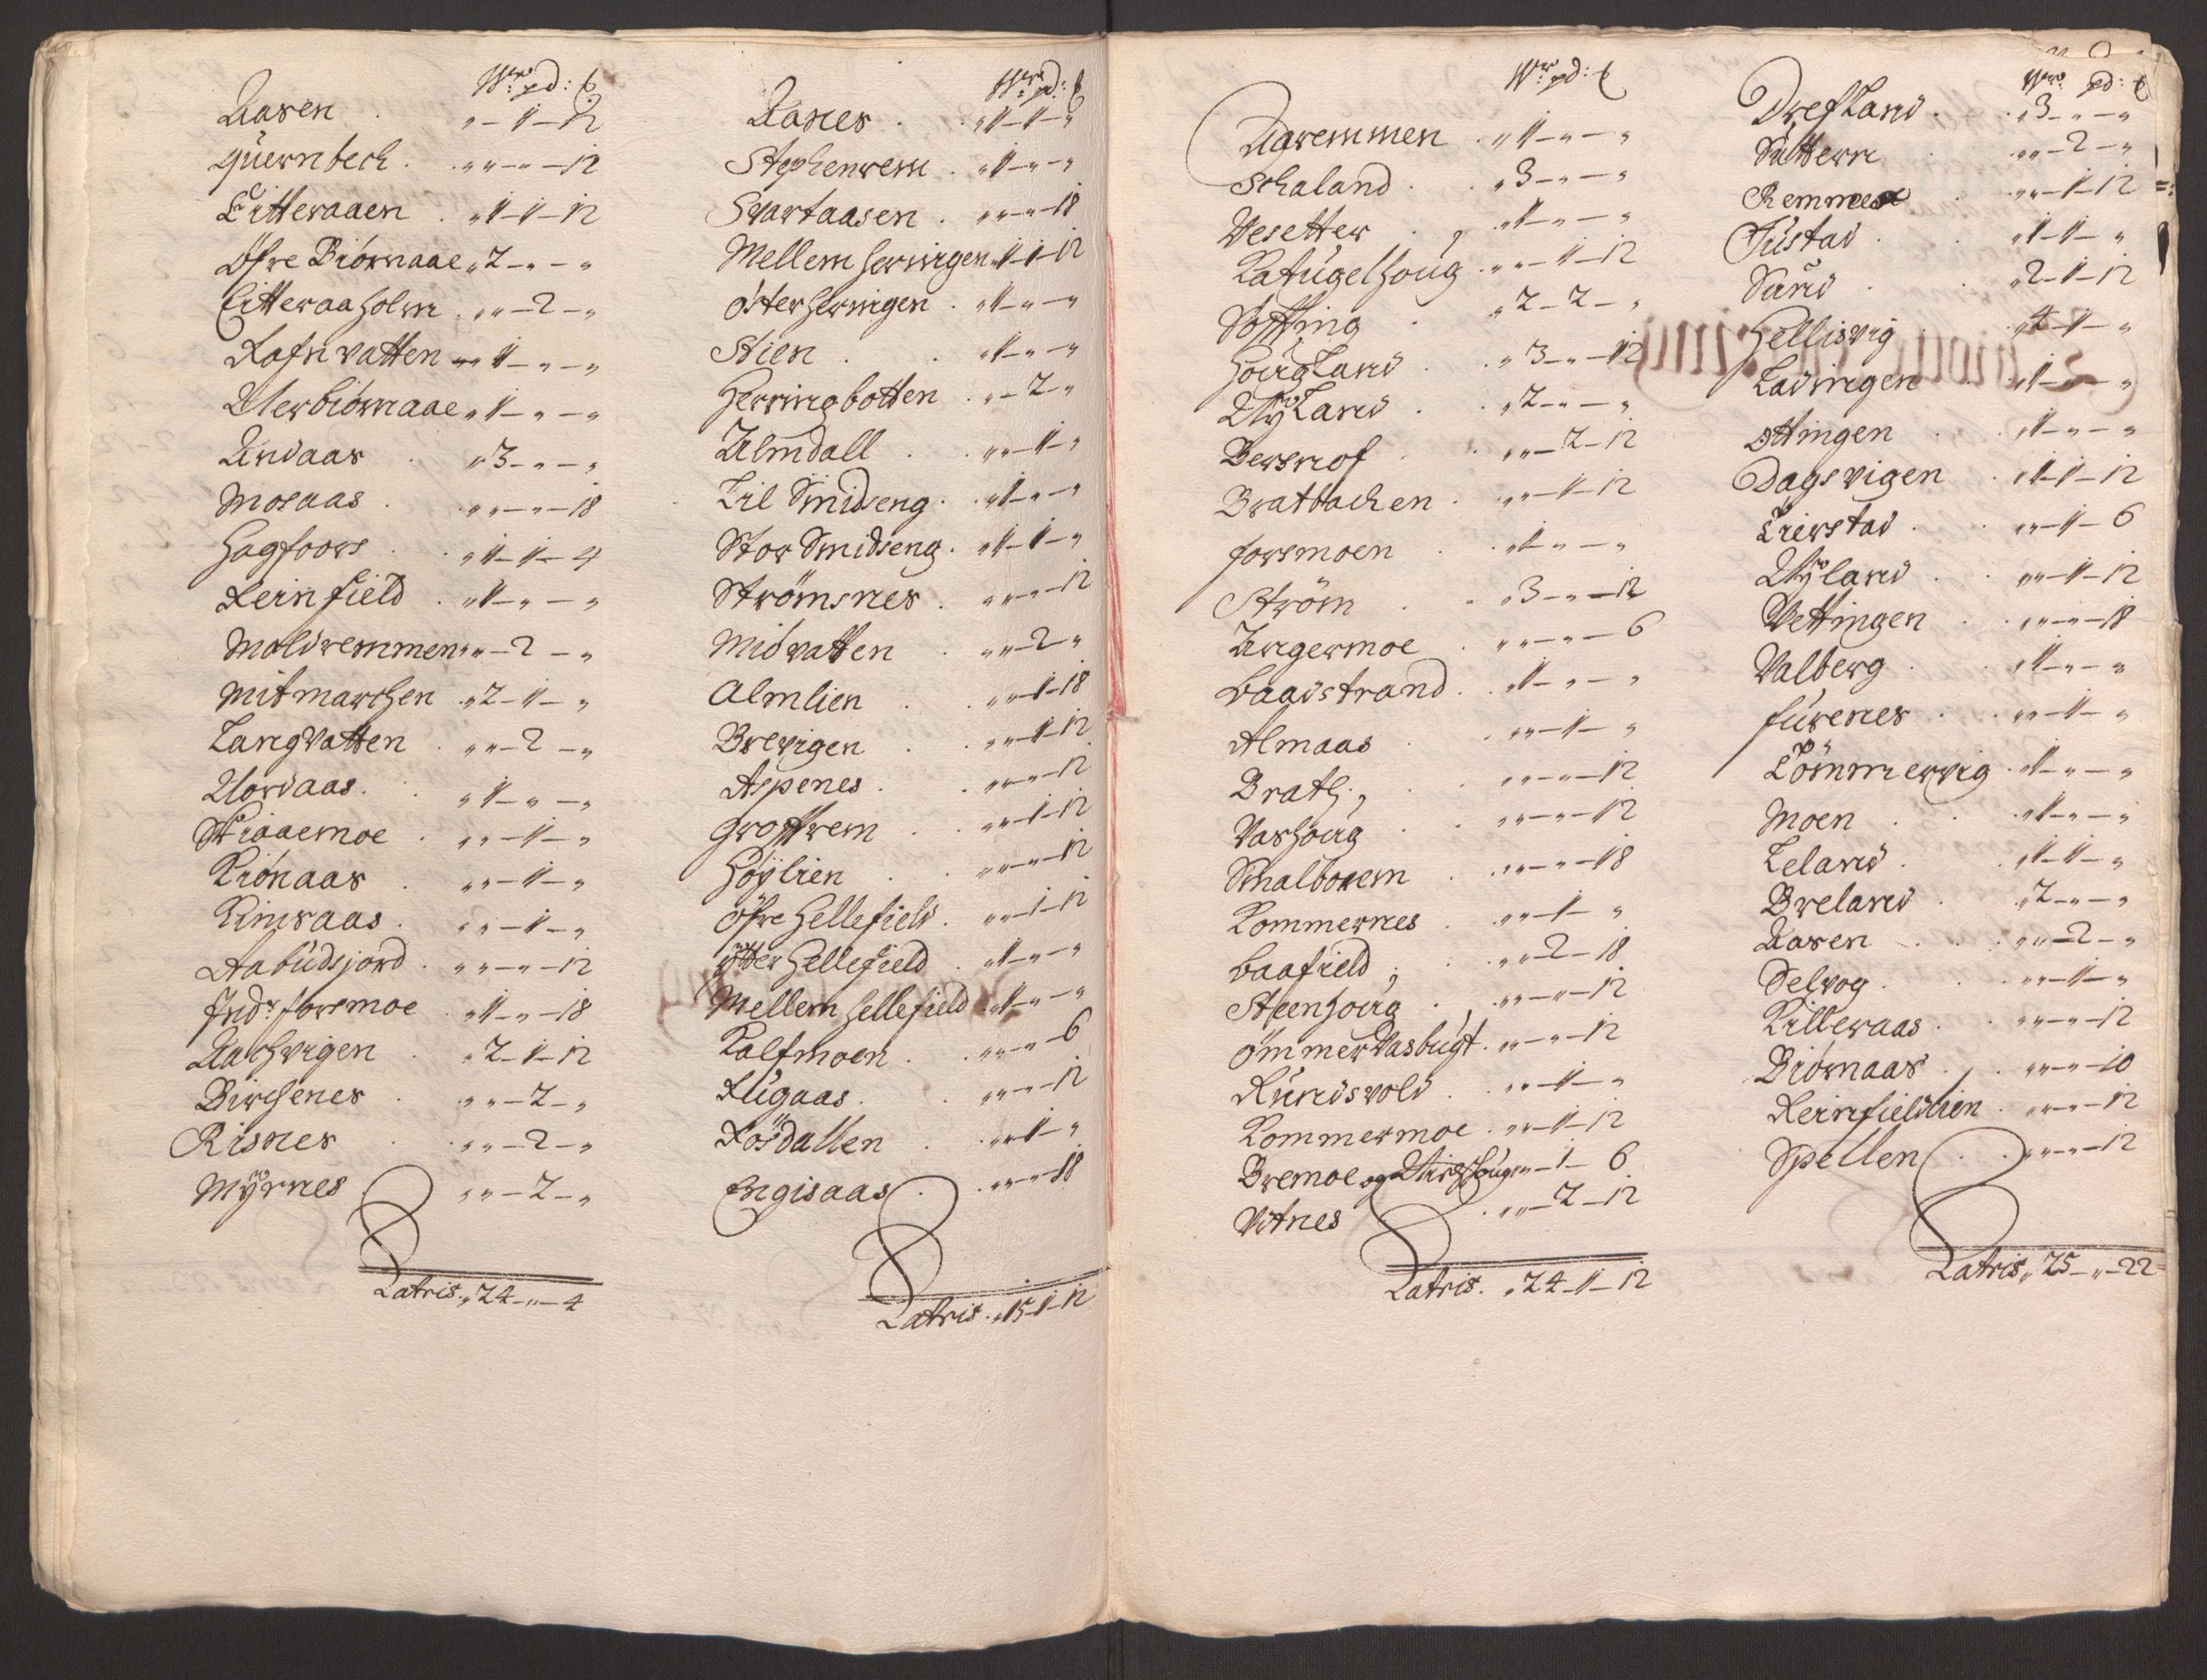 Wr: pd: t
Aasen . „ – 1 – 12
Quernbech . „ „ – „ – 12
Litteraaen . „ 1 – 1 – 12
Øfre Biørnaae „ 2 – „ – „
Litteraaholm . „ „ – 2 – „
Rafnvatten „ 1 – „ – „
Uterbiørnaae „ 1 – „ – „
Andaas . „ 3 – „ – „
Mosaas . „ „ – „ – 18
Hagfoors . „ 1 – 1 – 4
Reinfield . „ 1 – „ – „
Moldremmen „ „ – 2 – „
Mitmarchen „ 2 – 1 – „
Langvatten . „ „ – 2 – „
Nordaas . „ 1 – „ – „
Skiaaemoe . „ „ – 1 – „
Kiønaas . „ „ – 1 – „
Kinsaas . „ „ – 1 – „
Aabudsjord . „ „ – „ – 12
Indr: forsmoe „ 1 – „ – 18
Aachvigen . „ 2 – 1 – 12
Birchenes . „ „ – 2 – „
Risnes . „ „ – 2 – „
Myrnes „ „ – 2 – „
Latris . „ 24 – „ – 4
Wr: pd: t
Ranes . „ 1 – 1 – 6
Stephenrem . „ 1 – „ – „
Svartaasen . „ „ – „ – 18
Mellem Herringen „ 1 – 1 – 12
Østerherringen . „ 1 – „ – „
Stien . „ 1 – „ – „
Herringbotten . „ – 2 – „
Almdall . „ „ – 1 – „
Lil Smidseng . „ 1 – „ – „
Stor Smidseng . „ 1 – 1 – „
Strømsnes . „ „ – „ – 12
Midvatten . „ „ – 2 – „
Almlien . „ „ – 1 – 18
Brevigen . „ „ – 1 – 12
Aspenes . „ „ – „ – 12
Groffrem . „ „ – 1 – 12
Høylien . „ „ – „ – 12
Øfre Hellefield . „ „ – 1 – 12
ytter Hellefield . „ 1 – „ – „
Mellem Hellefield „ 1 – „ – „
Kalfmoen . „ „ – „ – 6
Rugaas . „ „ – „ – 12
Røsdallen . „ „ – 1 – „
Engisaas . „ „ – „ – 18
Latris . „ 15 – 1 – 12
Wr: pd: t
Aaremmen . „ 1 – „ – „
Schaland . „ 3 – „ – „
Vesetter . „ 1 – „ – „
Katugelhoug „ „ – 1 – 12
Søffting . „ 2 – 2 – „
Hougland . „ 3 – „ – 12
Nyland . „ 2 – „ – „
Bersnof . „ „ – 2 – 12
Bratbachen . „ „ – 1 – 12
forsmoen . „ 1 – „ – „
Strøm . „ 3 – „ – 12
Angermoe . „ „ – „ – 6
Baadstrand . „ 1 – „ – „
Almaas . „ „ – 1 – „
Bratlj . „ „ – „ – 12
Vashoug . „ „ – „ – 12
Smalborem . „ „ – „ – 18
Kommernes . „ „ – 1 – „
Baafield . „ „ – 2 – 18
Steenhoug . „ „ – „ – 12
Ømmervasbugt . „ „ – „ – 12
Rundsvold . „ „ – 1 – „
Kommermoe . „ „ – 1 – 12
Bremoe og Kirchhoug „ „ – 1 – 6
Vitnes . „ „ – 2 – 12
Latris . „ 24 – 1 – 12
Wr: pd: t
Drefland . „ 3 – „ – „
Suttern . „ „ – 2 – „
Remmen . „ „ – 1 – 12
Tustad . „ 1 – 1 – „
Sund . „ 2 – 1 – 12
Hellisvig „ 4 – 1 – „
Ladingen . „ 1 – „ – „
Ottingen . „ 1 – „ – „
Dagsvigen . „ 1 – 1 – 12
Lierstad . „ „ – 1 – 6
Nyland . „ „ – 1 – 12
Vettingen . „ „ – „ – 18
Valberg . „ 1 – „ – „
furenes . „ „ – 1 – „
Tømmervig . „ 1 – „ – „
Moen . „ 1 – „ – „
Leland . „ 1 – 1 – „
Breland . „ 2 – „ – „
Aasen . „ „ – 2 – „
Selvog . „ „ – 1 – „
Killeraas . „ „ – „ – 12
Biørnaas . „ „ – „ – 10
Reinfieldlien . „ „ – „ – 12
Spellen . „ „ – „ – 12
Latris . „ 25 – „ – 22